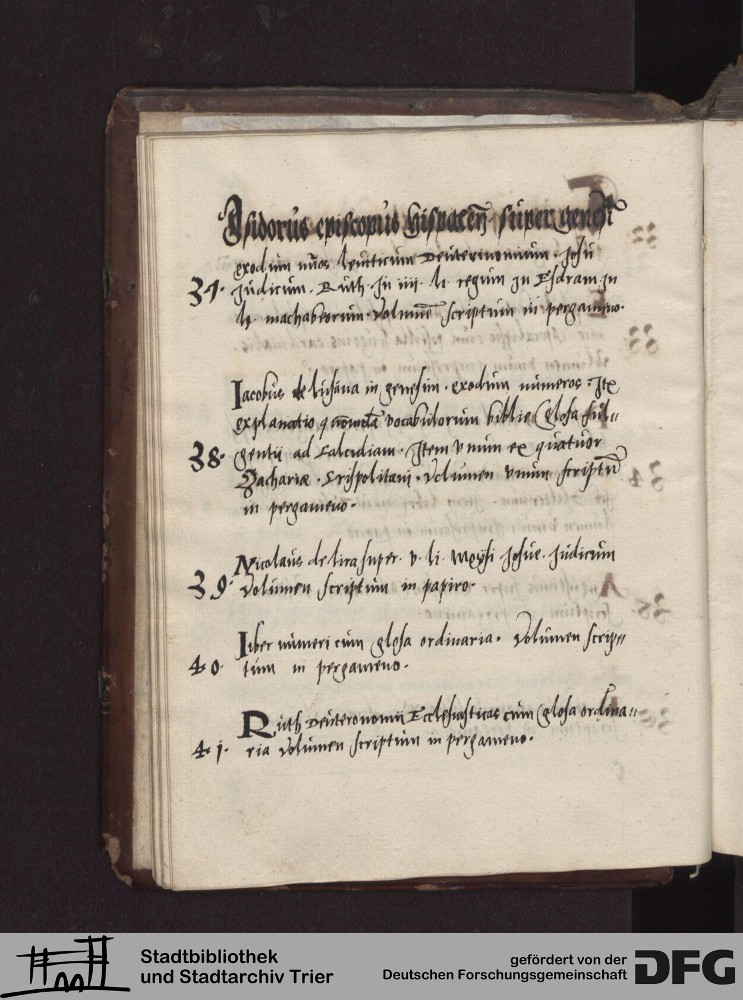 Isidorus episcopus hispaceñ super genesi
exodum leuiticum Deuteronomium · Josu
37· Judicum · Ruth · In iiii · li · regum In Esdram In
li · machabeorum · Volumē scriptum in pergameno ·
Iacobus de lusana in genesim · exodum numeros · Itē
explanatio vocabulorum biblie Glosa ful=
38· gentii ad Calcidiam · Item vnum ex quatuor
Zachariæ · Crispolitani · Volumen vnum scriptū
in pergameno ·
Nicolaus de lira super · v · li · Moysi Josue · Judicum
39· Volumen scriptum in papiro ·
Liber numeri cum glosa ordinaria · Volumen scrip=
40· tum in pergameno ·
Ruth Deuteronomii Ecclesiasticus cum Glosa ordina=
41· ria Volumen scriptum in pergameno ·
Stadtbibliothek
und Stadtarchiv Trier
gefördert von der
Deutschen Forschungsgemeinschaft
DFG